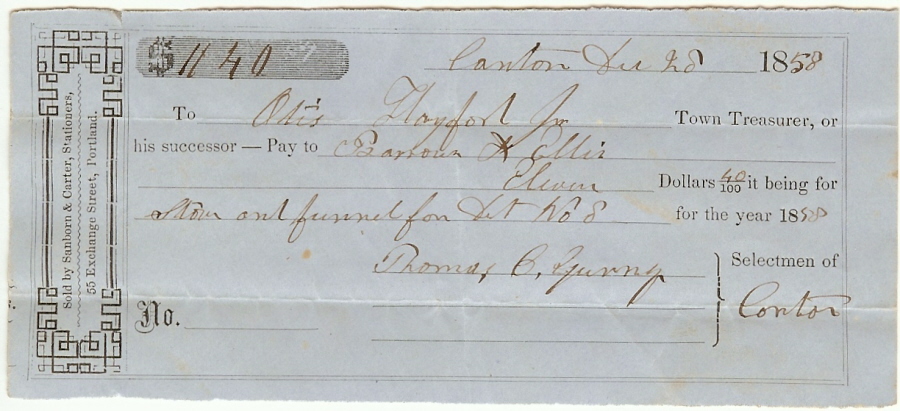 $ 11 40
Canton Dec 28 1858
To Otis Hayford Jr Town Treasurer, or
his successor — Pay to Barrows & Ellis
Eleven Dollars 40/100 it being for
Stove and funnel for Dst No 8 for the year 1858
Thomas C. Gurney Selectmen of
Canton
No.
Sold by Sanborn & Carter, Stationers,
55 Exchange Street, Portland.